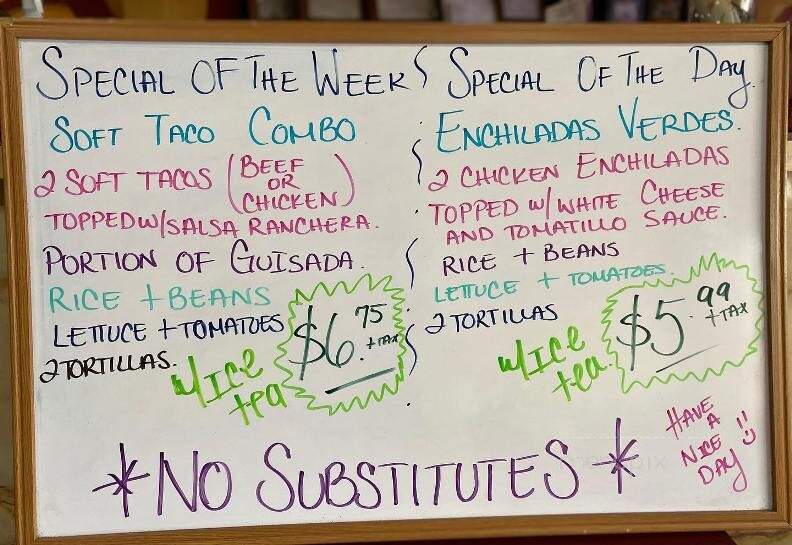 SPECIAL OF THE WEEK
SOFT TACO COMBO
2 SOFT TACOS (BEEF OR CHICKEN)
TOPPED W/SALSA RANCHERA.
PORTION OF GUISADA.
RICE + BEANS
LETTUCE + TOMATOES
2 TORTILLAS.
W/ICE tea
$6.75 + TAX
SPECIAL OF THE DAY
ENCHILADAS VERDES.
2 CHICKEN ENCHILADAS
TOPPED W/ WHITE CHEESE
AND TOMATILLO SAUCE.
RICE + BEANS
LETTUCE + TOMATOES.
2 TORTILLAS
W/ICE tea.
$5.99 + TAX
*NO SUBSTITUTES*
HAVE
A
NICE !!
DAY